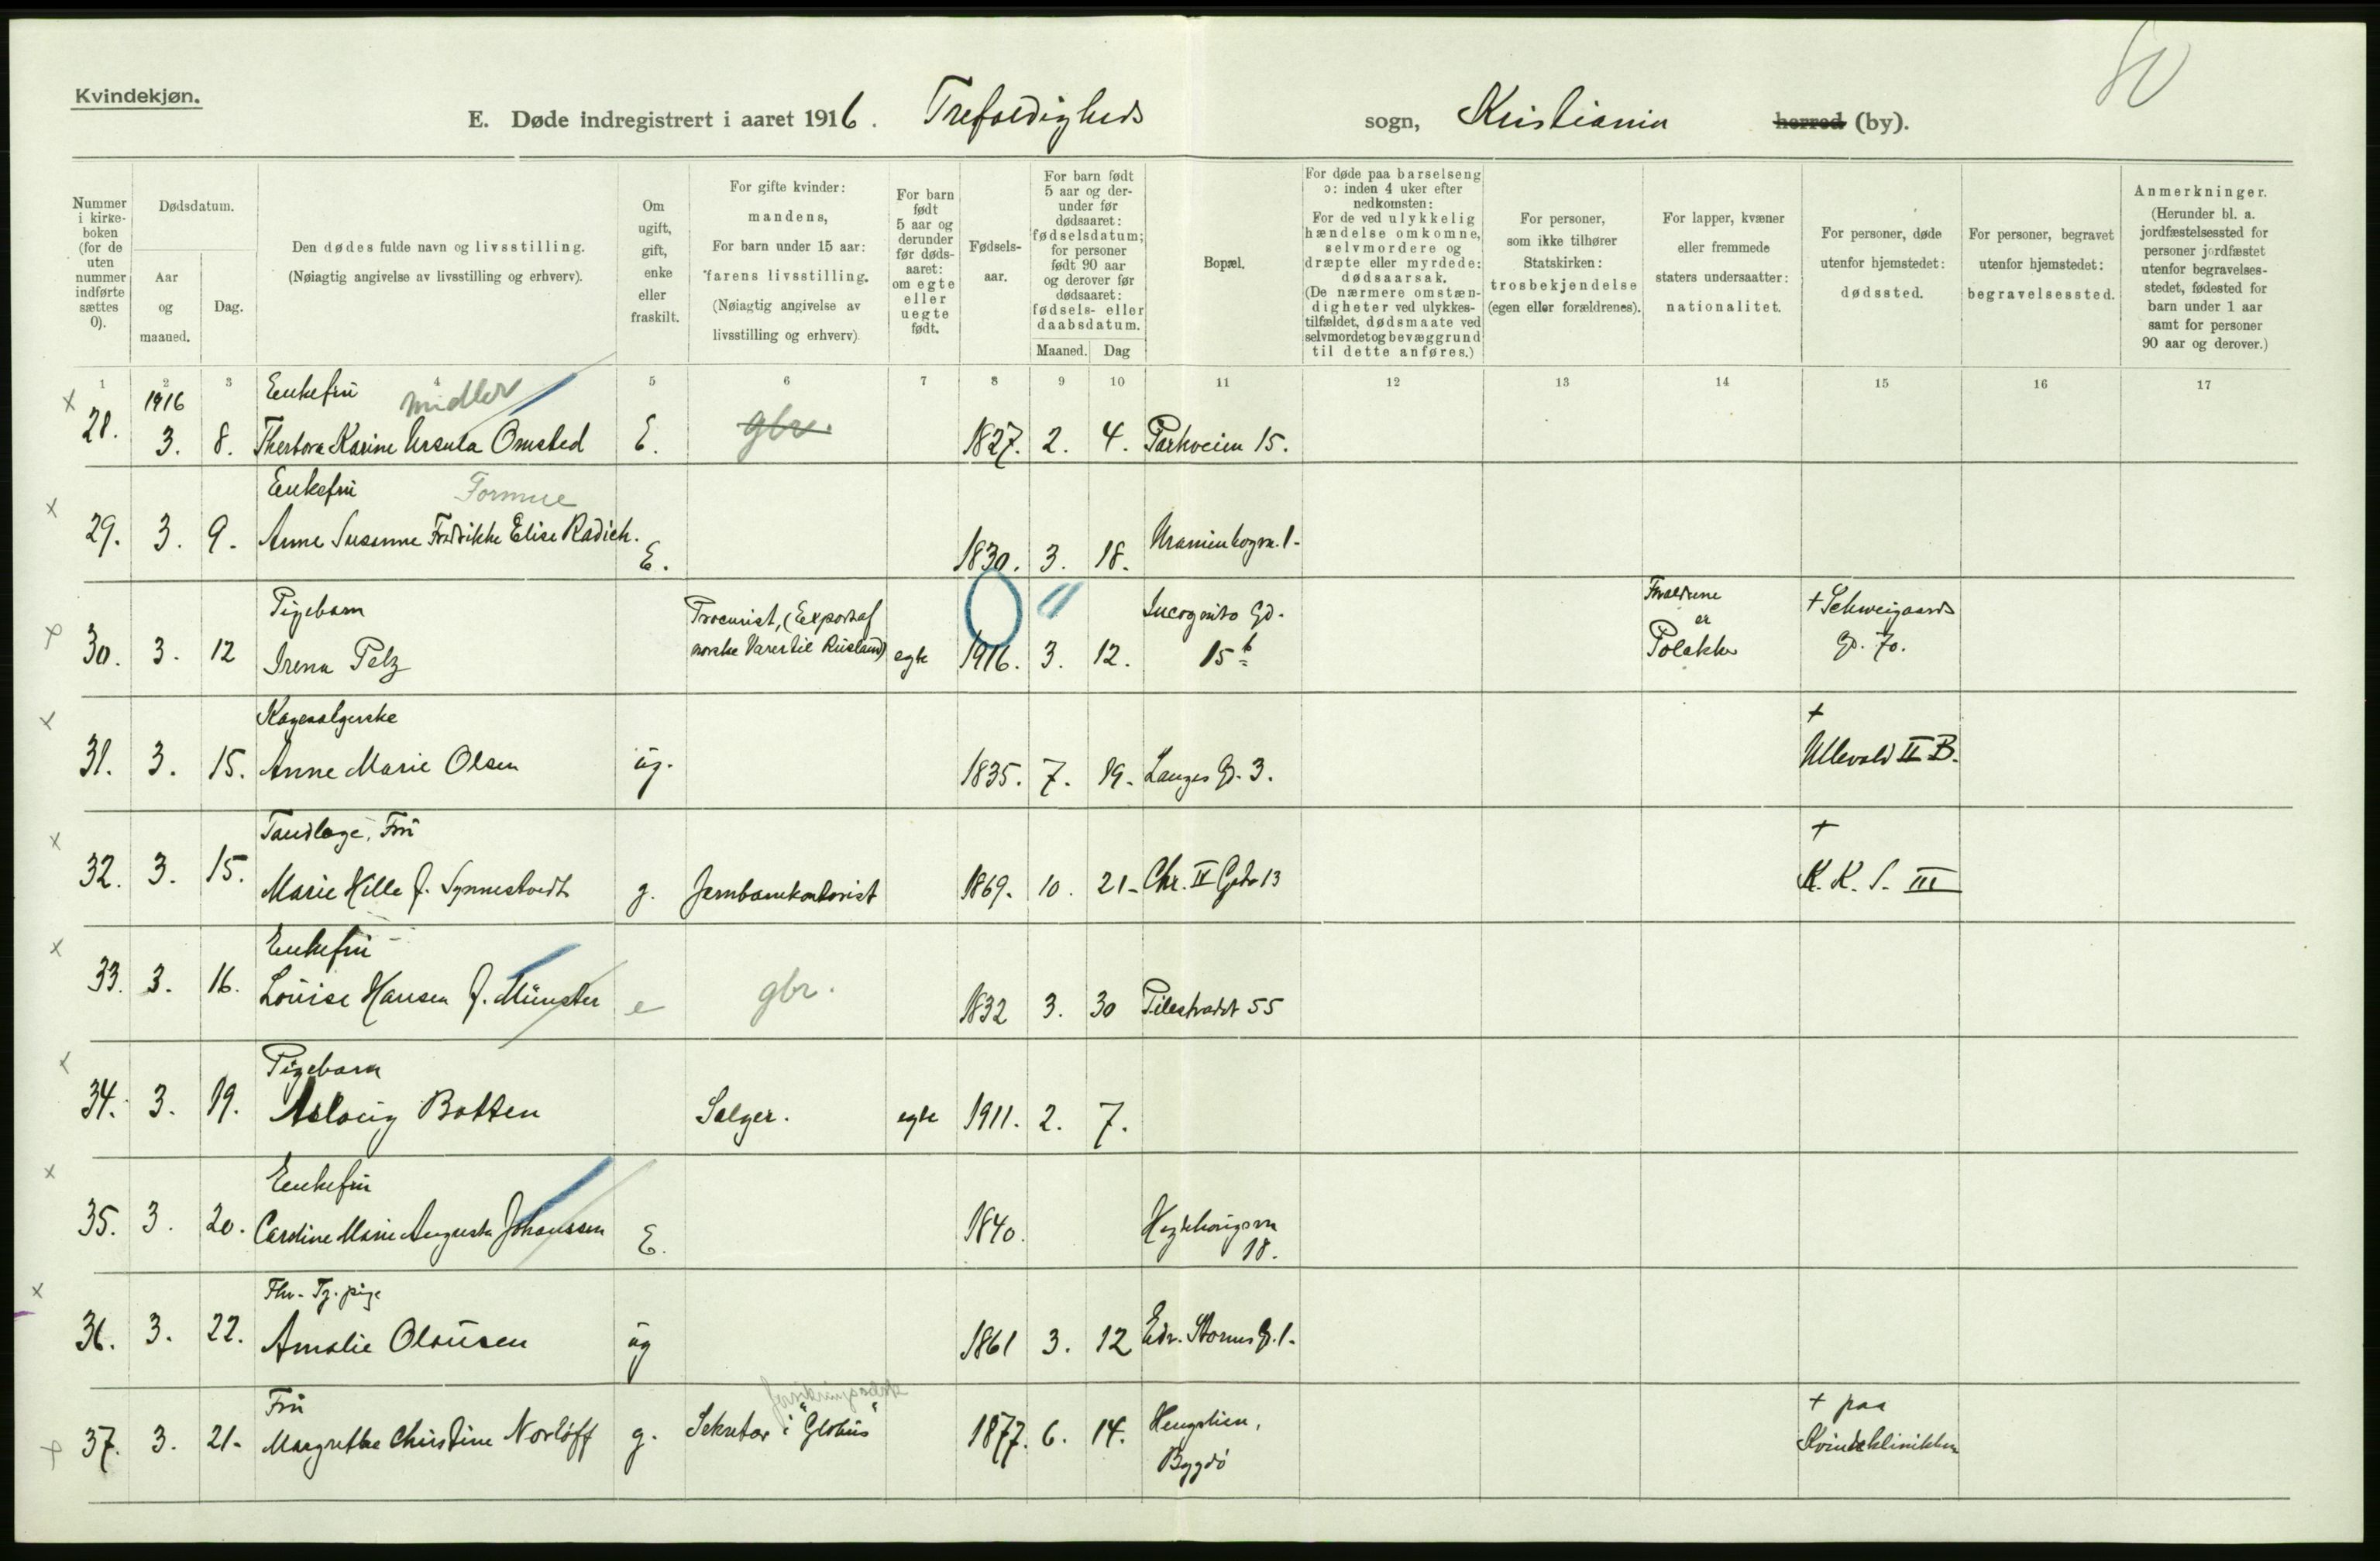 Kvindekjøn.
E. Døde indregistrert i aaret 1916. Trefoldigheds sogn, Kristiania herred (by).
Nummer i kirke-boken (for de uten nummer indførte sættes 0).
Dødsdatum.
Aar og maaned.
Dag.
Den dødes fulde navn og livsstilling.
(Nøiagtig angivelse av livsstilling og erhverv).
Om ugift, gift, enke eller fraskilt.
For gifte kvinder: mandens,
For barn under 15 aar: farens livsstilling.
(Nøiagtig angivelse av livsstilling og erhverv)
For barn født 5 aar og derunder før døds-aaret: om egte eller uegte født.
Fødsels-aar.
For barn født 5 aar og der-under før dødsaaret: fødselsdatum; for personer født 90 aar og derover før dødsaaret: fødsels- eller daabsdatum.
Maaned. Dag
Bopæl.
For døde paa barselseng ɔ: inden 4 uker efter nedkomsten:
For de ved ulykkelig hændelse omkomne, selvmordere og dræpte eller myrdede: dødsaarsak.
(De nærmere omstæn-digheter ved ulykkes-tilfældet, dødsmaate ved selvmordet og bevæggrund til dette anføres.)
For personer, som ikke tilhører Statskirken: trosbekjendelse (egen eller forældrenes).
For lapper, kvæner eller fremmede staters undersaatter: nationalitet.
For personer, døde utenfor hjemstedet: dødssted.
For personer, begravet utenfor hjemstedet: begravelsessted.
Anmerkninger.
(Herunder bl. a. jordfæstelsessted for personer jordfæstet utenfor begravelses-stedet, fødested for barn under 1 aar samt for personer 90 aar og derover.)
1 2 3 4 5 6 7 8 9 10 11 12 13 14 15 16 17
1916 Enkefru midler
28. 3. 8. Karine Ursula Omsted E. gbr. 1827. 2. 4. Parkveien 15.
Enkefru Formue
29. 3. 9. Anne Susanne Fredrikke Elise Radich. E. 1830. 3. 18. Uranienborgvn. 1.
Pigebarn Procurist, (Export af norske Varer til Rusland) Incognito Gd. Forældrene er + Schweigaards
30. 3. 12 Irena Pelz egte 1916. 3. 12. 15 b Polakker Gd. 70.
Kagesælgerske +
31. 3. 15. Anne Marie Olsen ug. 1835. 7. 19. Langes Gd. 3. Ullevold II B.
Tandlæge, Fru +
32. 3. 15. Marie Hille f. Synnestvedt g. Jernbanekontorist 1869. 10. 21. Chr. IV Gade 13 K. K. S. III
Enkefru
33. 3. 16. Louise Hansen f. Münster e gbr. 1832 3. 30 Pilestrædet 55
Pigebarn
34. 3. 19. Aslaug Botten Sælger. egte 1911. 2. 7.
Enkefru
35. 3. 20. Caroline Marie Augusta Johanssen E. 1840. Hegdehaugsvn 18.
Fhv. Tj. pige
36. 3. 22. Amalie Olausen ug 1861 3. 12 Edv. Storms Gd. 1.
Fru + paa
37. 3. 21. Margrethe Christine Norløff g. Sekretær i "Globus" 1877. 6. 14. Hengslien, Bygdø Kvindeklinikken